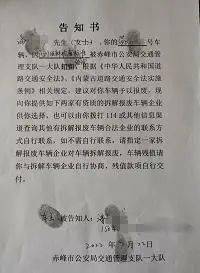 告知书
先生(女士):你的 号车
辆,因 被赤峰市公安局交通管
理支队一大队扣留,根据《中华人民共和国道
路交通安全法》、《内蒙古道路交通安全法实施
条例》相关规定,建议对你车辆予以报废。现
向你提供如下两家有资质的拆解报废车辆企业
供你选择,也可以由你拨打114或其他信息渠
道查询其他有拆解报废车辆合法企业的联系方
式自行联系,如不需自行联系,请指定一家拆
解报废车辆企业对车辆拆解报废,车辆残值请
你与拆解车辆企业自行协商,残值款项自行交
付。
被告知人:
150
2022年 月22日
赤峰市公安局交通管理支队一大队